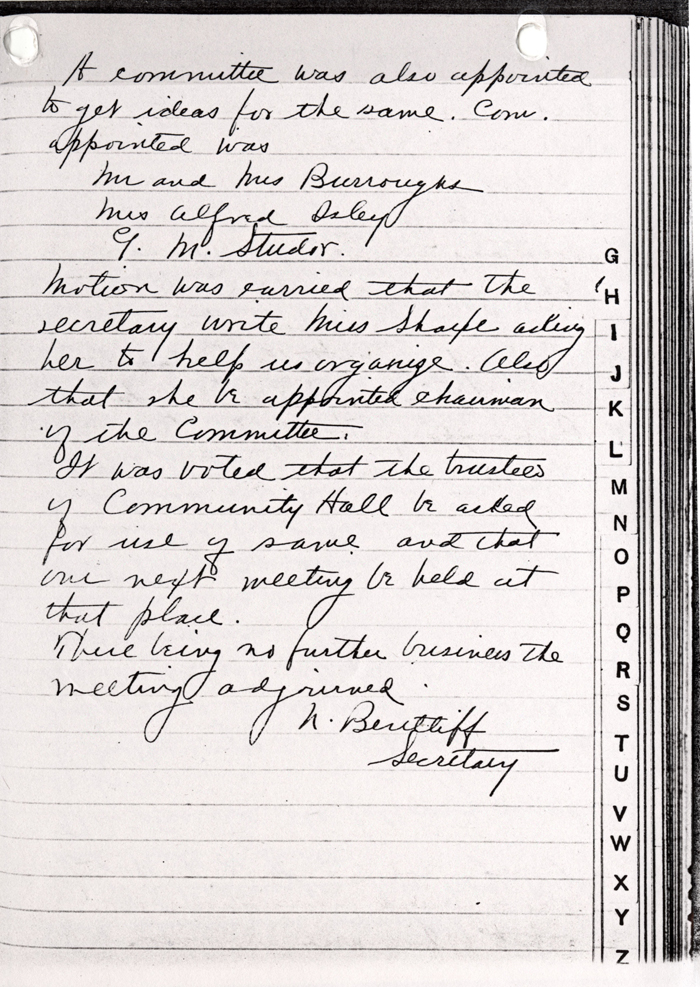 A committee was also appointed
to get ideas for the same. Com.
appointed was
Mr and Mrs Burroughs
Mrs Alfred Isley
G. M. Studor.
Motion was carried that the
secretary write Miss Sharpe asking
her to help us organize. Also
that she be appointed chairman
of the Committee.
It was voted that the trustees
of Community Hall be asked
for use of same and that
our next meeting be held at
that place.
There being no further business the
meeting adjourned.
N.
Secretary
G
H
I
J
K
L
M
N
O
P
Q
R
S
T
U
V
W
X
Y
Z